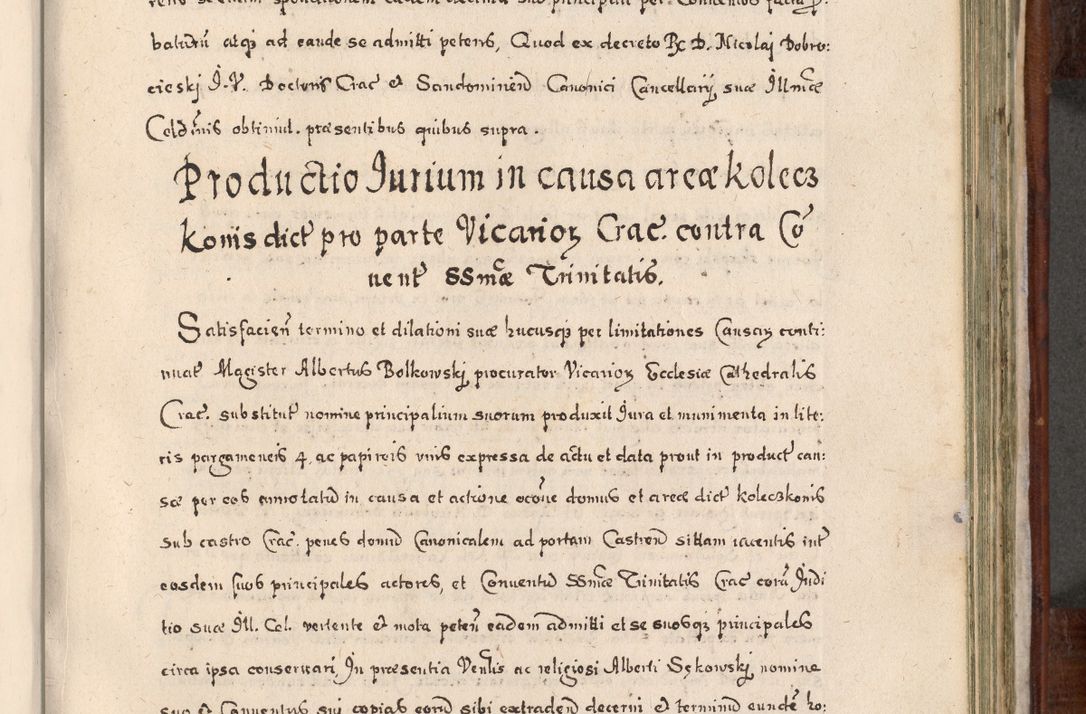 baturũ atqȝ ad eande se admitti petens, Quod ex decreto R. D. Nicolaj Dobro:
cieskj J. V. Doctoris Crac et Sandominień Canonici Cancellarÿ suæ Illmæ
Celdinis obtinuit. præsentibus quibus supra.
Productio Jurium in causa areæ kolecz
konis dict pro parte Vicarioȝ Crac. contra Co
nent SSmæ Trinitatis.
Satisfacień termino et dilationi suæ hucusqȝ per limitationes Causaȝ conti:
nuat Magister Albertus Bolkowskj procurator Vicarioȝ Ecclesiæ Cathedralis
Crac. substitut nomine principalium suorum produxit Jura et munimenta in lite:
ris pargameneis 4, ac papireis vnis expressa de actu et data prout in product cau:
sæ per eos annotatũ in causa et actione occõne domus et areæ dict koleczkonis
sub castro Crac. penes domũ Canonicalem ad portam Castreñ sittam iacentis int
eosdem suos principales actores, et Conuentũ SSmæ Trinitatis Crac corã Judi
tio suæ Ill. Cel. vertente et mota peteñ eadem admitti et se suosqȝ principales
circa ipsa conseruari, In præsentia Venlis ac religiosi Alberti Sękowskj nomine
suo et Conuentus sui copias eorũ sibi extradeñ decerni et terminũ eundẽ ho: